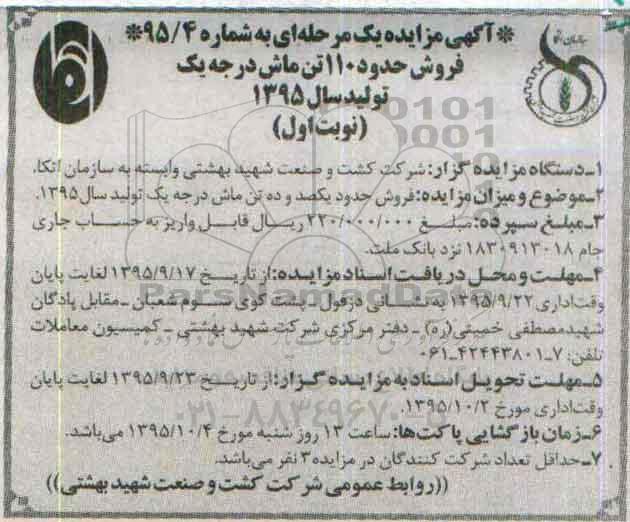 *آگهی مزایده یک مرحله‌ای به شماره ۹۵/۴*
فروش حدود ۱۱۰ تن ماش درجه یک
تولید سال ۱۳۹۵
(نوبت اول)
۱ـ دستگاه مزایده گزار: شرکت کشت و صنعت شهید بهشتی وابسته به سازمان اتکا.
۲ـ موضوع و میزان مزایده: فروش حدود یکصد و ده تن ماش درجه یک تولید سال ۱۳۹۵.
۳ـ مبلغ سپرده: مبلغ ۲۲۰/۰۰۰/۰۰۰ ریال قابل واریز به حساب جاری
جام ۱۸۳۰۹۱۳۰۱۸ نزد بانک ملت.
۴ـ مهلت و محل دریافت اسناد مزایده: از تاریخ ۱۳۹۵/۹/۱۷ لغایت پایان
وقت اداری ۱۳۹۵/۹/۲۲ به نشانی دزفول ـ پشت کوی سوم شعبان ـ مقابل پادگان
شهید مصطفی خمینی (ره) ـ دفتر مرکزی شرکت شهید بهشتی ـ کمیسیون معاملات
تلفن: ۷ـ۰۶۱ـ۴۲۴۴۳۸۰۱
۵ـ مهلت تحویل اسناد به مزایده گزار: از تاریخ ۱۳۹۵/۹/۲۳ لغایت پایان
وقت اداری مورخ ۱۳۹۵/۱۰/۲.
۶ـ زمان بازگشایی پاکت‌ها: ساعت ۱۳ روز شنبه مورخ ۱۳۹۵/۱۰/۴ می‌باشد.
۷ـ حداقل تعداد شرکت کنندگان در مزایده ۳ نفر می‌باشد.
((روابط عمومی شرکت کشت و صنعت شهید بهشتی))
ParsNamadData
۰۲۱-۸۸۳۴۹۶۷۰